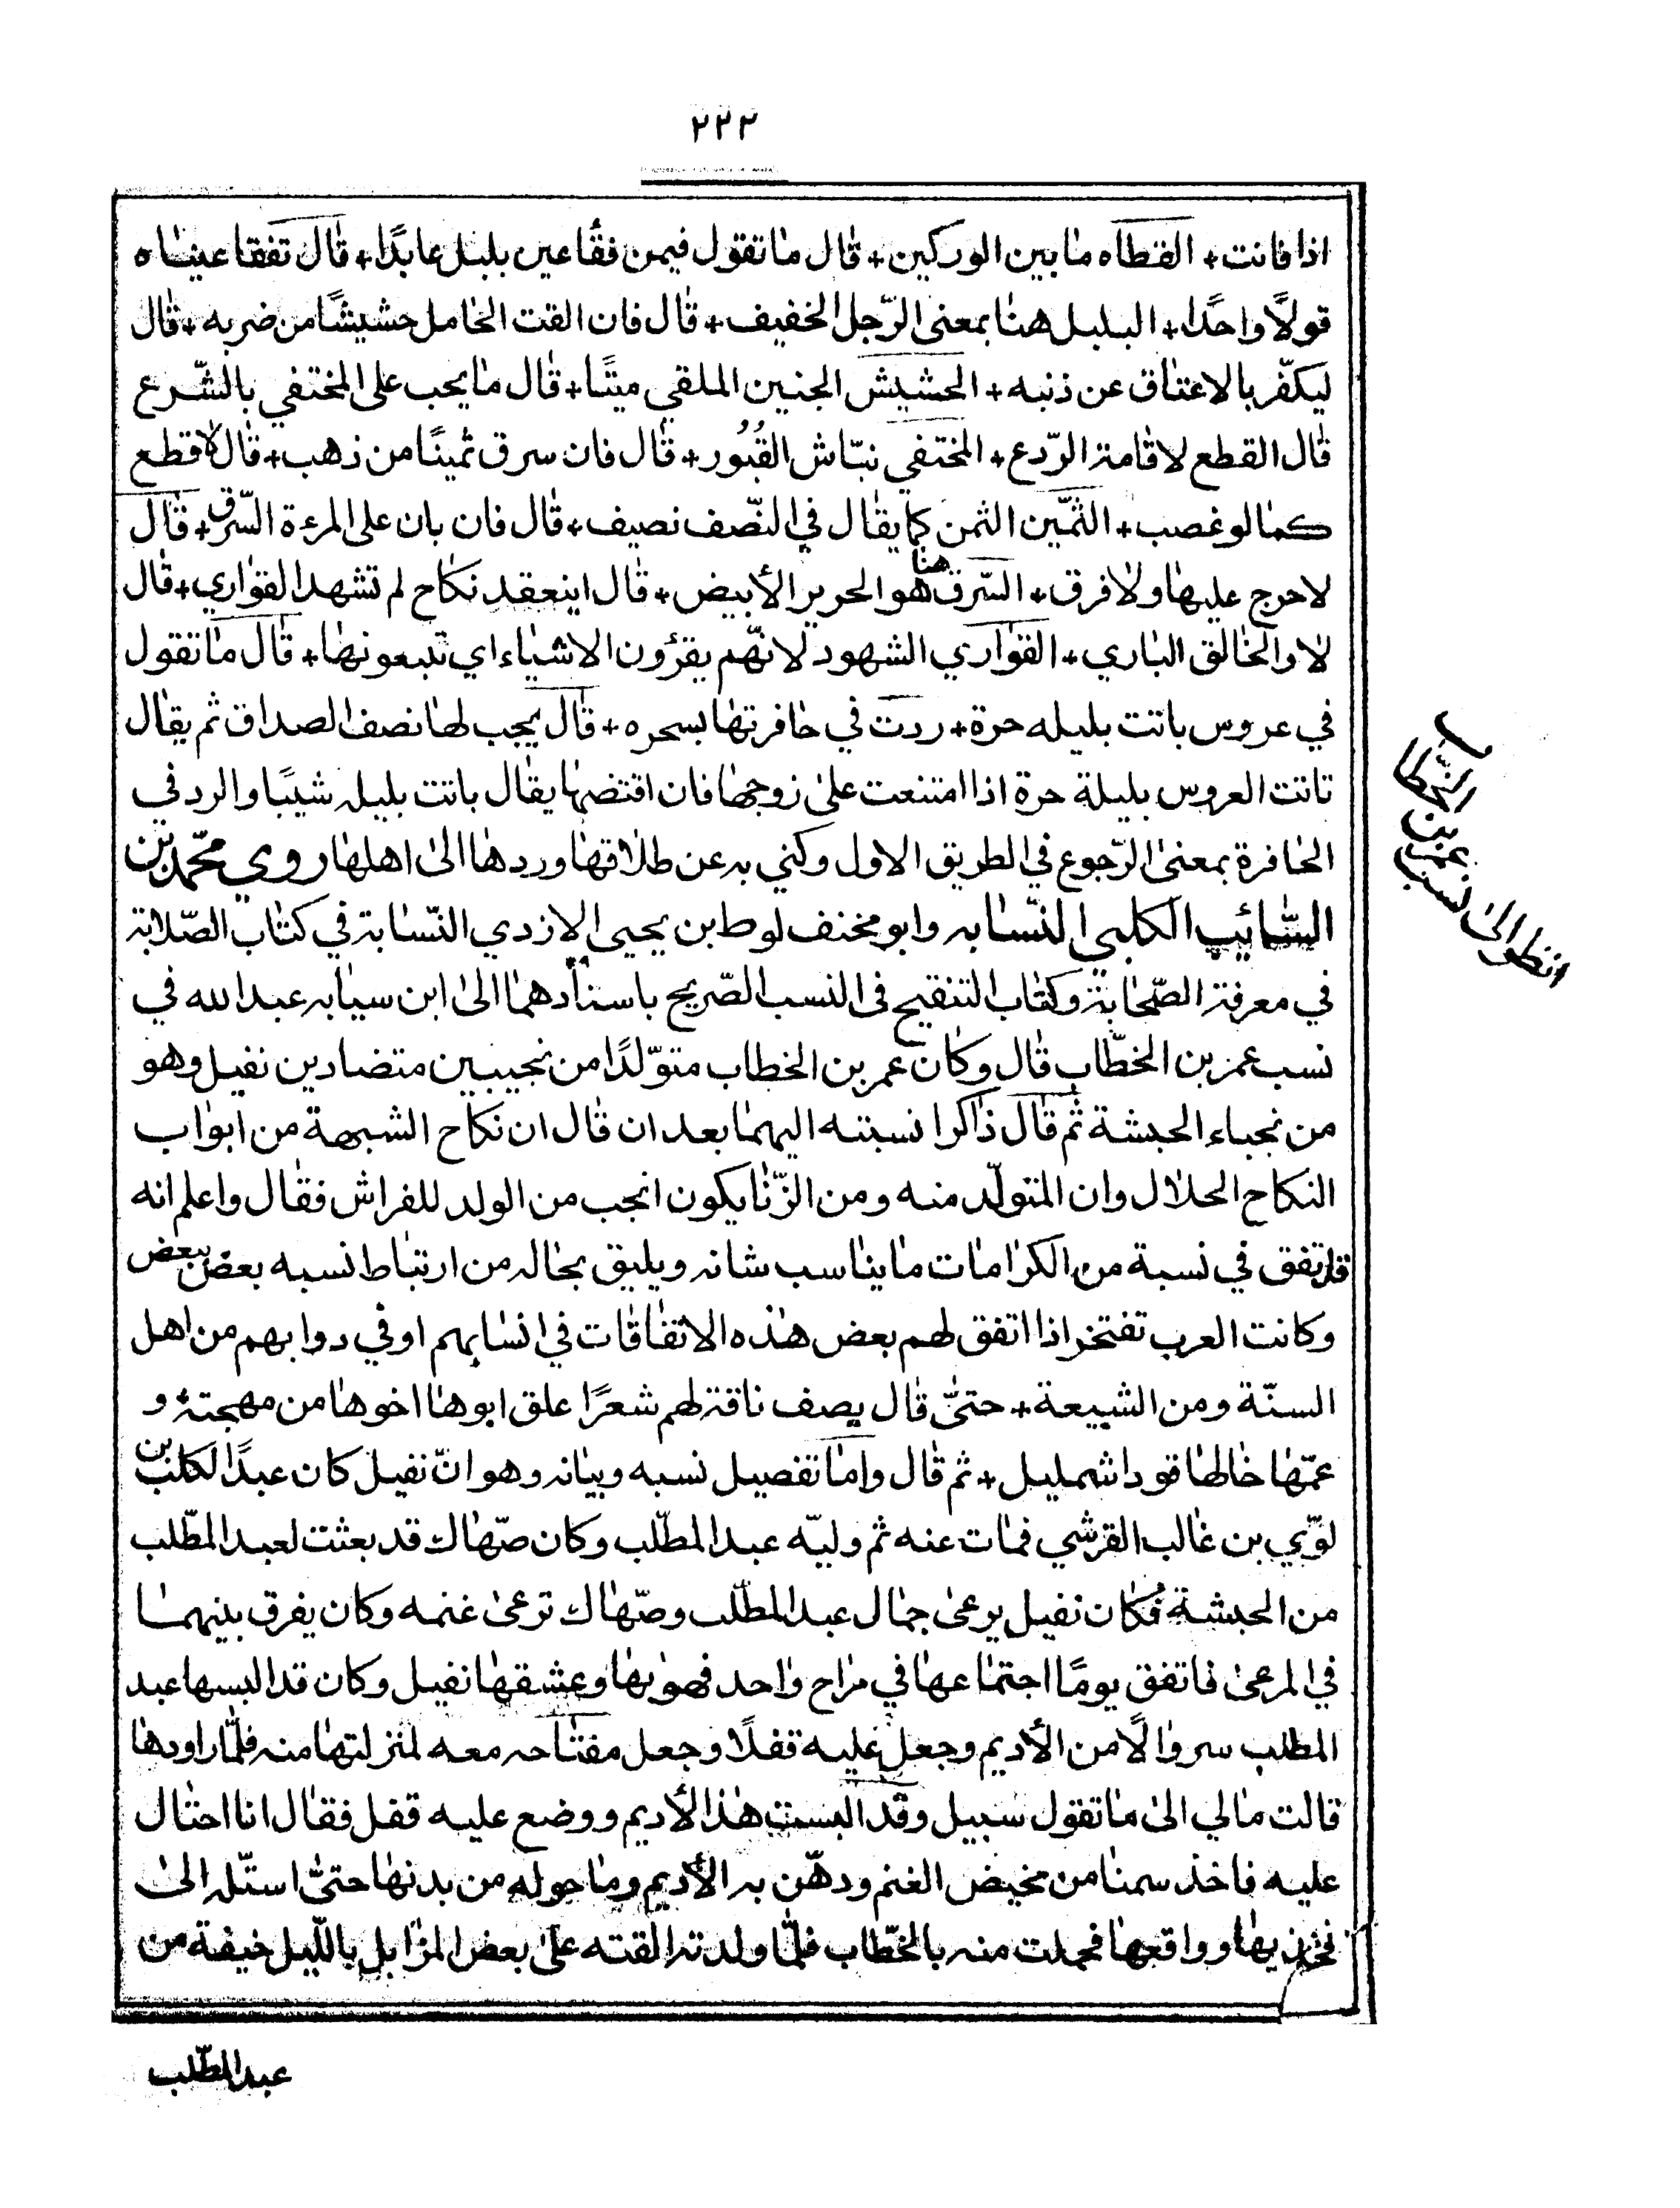 ٢٢٢
اذا فانت + القطاه ما بين الوركين + قال ما تقول فيمن فقأ عين بلبل عابدًا + قال تفقا عيناه
قولًا واحدًا + البلبل هنا بمعنى الرّجل الخفيف + قال فان القت الحامل حشيشًا من ضربه + قال
ليكفّر بالاعتاق عن ذنبه + الحشيش الجنين الملقي ميتًا + قال ما يجب على المختفي بالشّرع
قال القطع لاقامة الرّدع + المختفي نبّاش القُبُور + قال فان سرق ثمينًا من ذهب + قال لا قطع
كما لو غصب + الثمّين الثمن كما يقال في النّصف نصيف + قال فان بان على المرءة السّرق + قال
لا حرج عليها ولا فرق + السّرق هنا هو الحرير الأبيض + قال اينعقد نكاح لم تشهد القواري + قال
لا والخالق الباري + القواري الشهود لانهّم يقرؤن الاشياء اي تتبعونها + قال ما تقول
في عروس باتت بليله حرة + ردت في حافرتها بسحره + قال يجب لها نصف الصداق ثم يقال
تاتت العروس بليلة حرة اذا امتنعت على زوجها فان اقتضها يقال باتت بليله شيبًا والرد في
الحافرة بمعنى الرّجوع في الطريق الاول وكني به عن طلاقها وردها الى اهلها روي محّمد بن
السّائيب الكلبي النسّابه وابو مخنف لوط بن يحيى الازدي النسّابة في كتاب الصّلابة
في معرفة الصّحابة وكتاب التنقيح في النسب الصّريح باسنادهما الى ابن سيابه عبد الله في
نسب عمر بن الخطّاب قال وكان عمر بن الخطاب متوّلدًا من نجيبين متضادين نفيل وهو
من نجباء الحبشة ثم قال ذاكرا نسبته اليهما بعد ان قال ان نكاح الشبهة من ابواب
النكاح الحلال وان المتولّد منه ومن الزّنا يكون انجب من الولد للفراش فقال واعلم انه
قد تفق في نسبة من الكرامات ما يناسب شانه ويليق بحاله من ارتباط نسبه بعض ببعض
وكانت العرب تفتخر اذا اتفق لهم بعض هذه الاتفاقات في انسابهم او في دوابهم من اهل
السنّة ومن الشيعة + حتىّ قال يصف ناقة لهم شعرًا علق ابوها اخوها من مهجته و
عمّها خالها قودا شمليل + ثم قال واما تفصيل نسبه وبيانه وهو انّ نفيل كان عبدًا لكلب بن
لوّي بن غالب القرشي فمات عنه ثم وليّه عبد المطلّب وكان صّهاك قد بعثت لعبد المطّلب
من الحبشة فكان نفيل يرعى جمال عبد المطلّب وصّهاك ترعى غنمه وكان يفرق بينهما
في المرعى فاتفق يومًا اجتماعها في مراح واحد فهوٰ بها وعشقها نفيل وكان قد البسها عبد
المطلب سروالًا من الأديم وجعل عليه قفلًا وجعل مفتاحه معه لمنزلتها منه فلمّا راودها
قالت مالي الى ما تقول سبيل وقد البست هذا الأديم ووضع عليه قفل فقال انا احتال
عليه فاخذ سمنا من مخيض الغنم ودهّن به الأديم وما حوله من بدنها حتىّ استلّه الى
فخذيها وواقعها فحملت منه بالخطّاب فلمّا ولدته القته على بعض المزابل بالليل خيفة من
عبد المطّلب
انظر الى نسب
عمر بن
الخطّاب